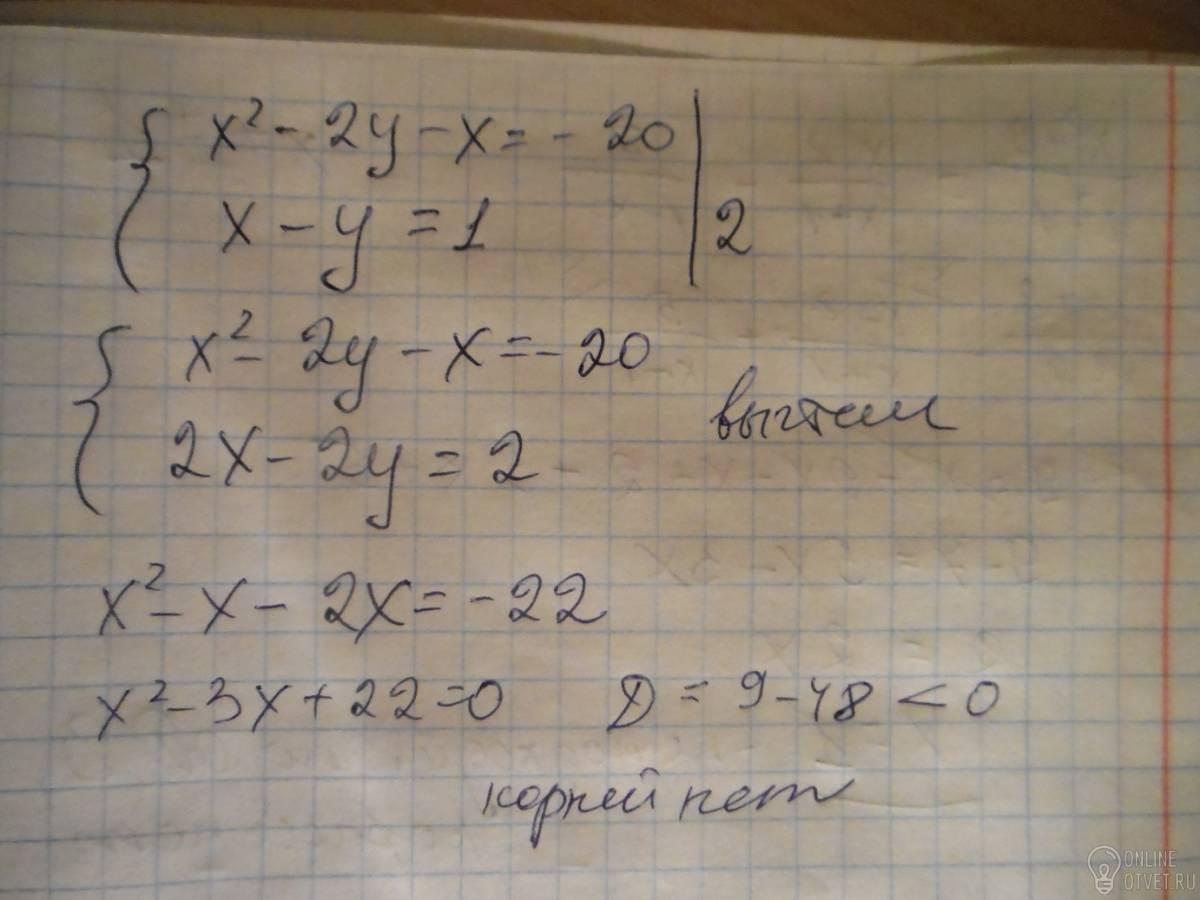 x² - 2y - x = - 20
x - y = 1 | 2
x² - 2y - x = - 20
2x - 2y = 2
вычтем
x² - x - 2x = -22
x² - 3x + 22 = 0 D = 9 - 48 < 0
корней нет
ONLINE
OTVET.RU